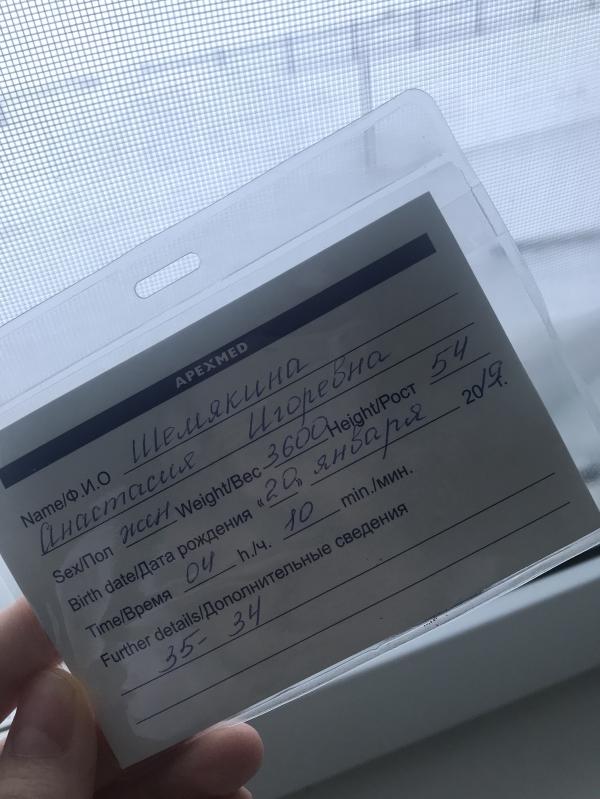 APEXMED
Name/Ф.И.О Шемякина
Анастасия Игоревна
Sex/Пол жен Weight/Вес 3600 Height/Рост 54
Birth date/Дата рождения «20» января 2019г.
Time/Время 04 h./ч. 10 min./мин.
Further details/Дополнительные сведения
35- 34